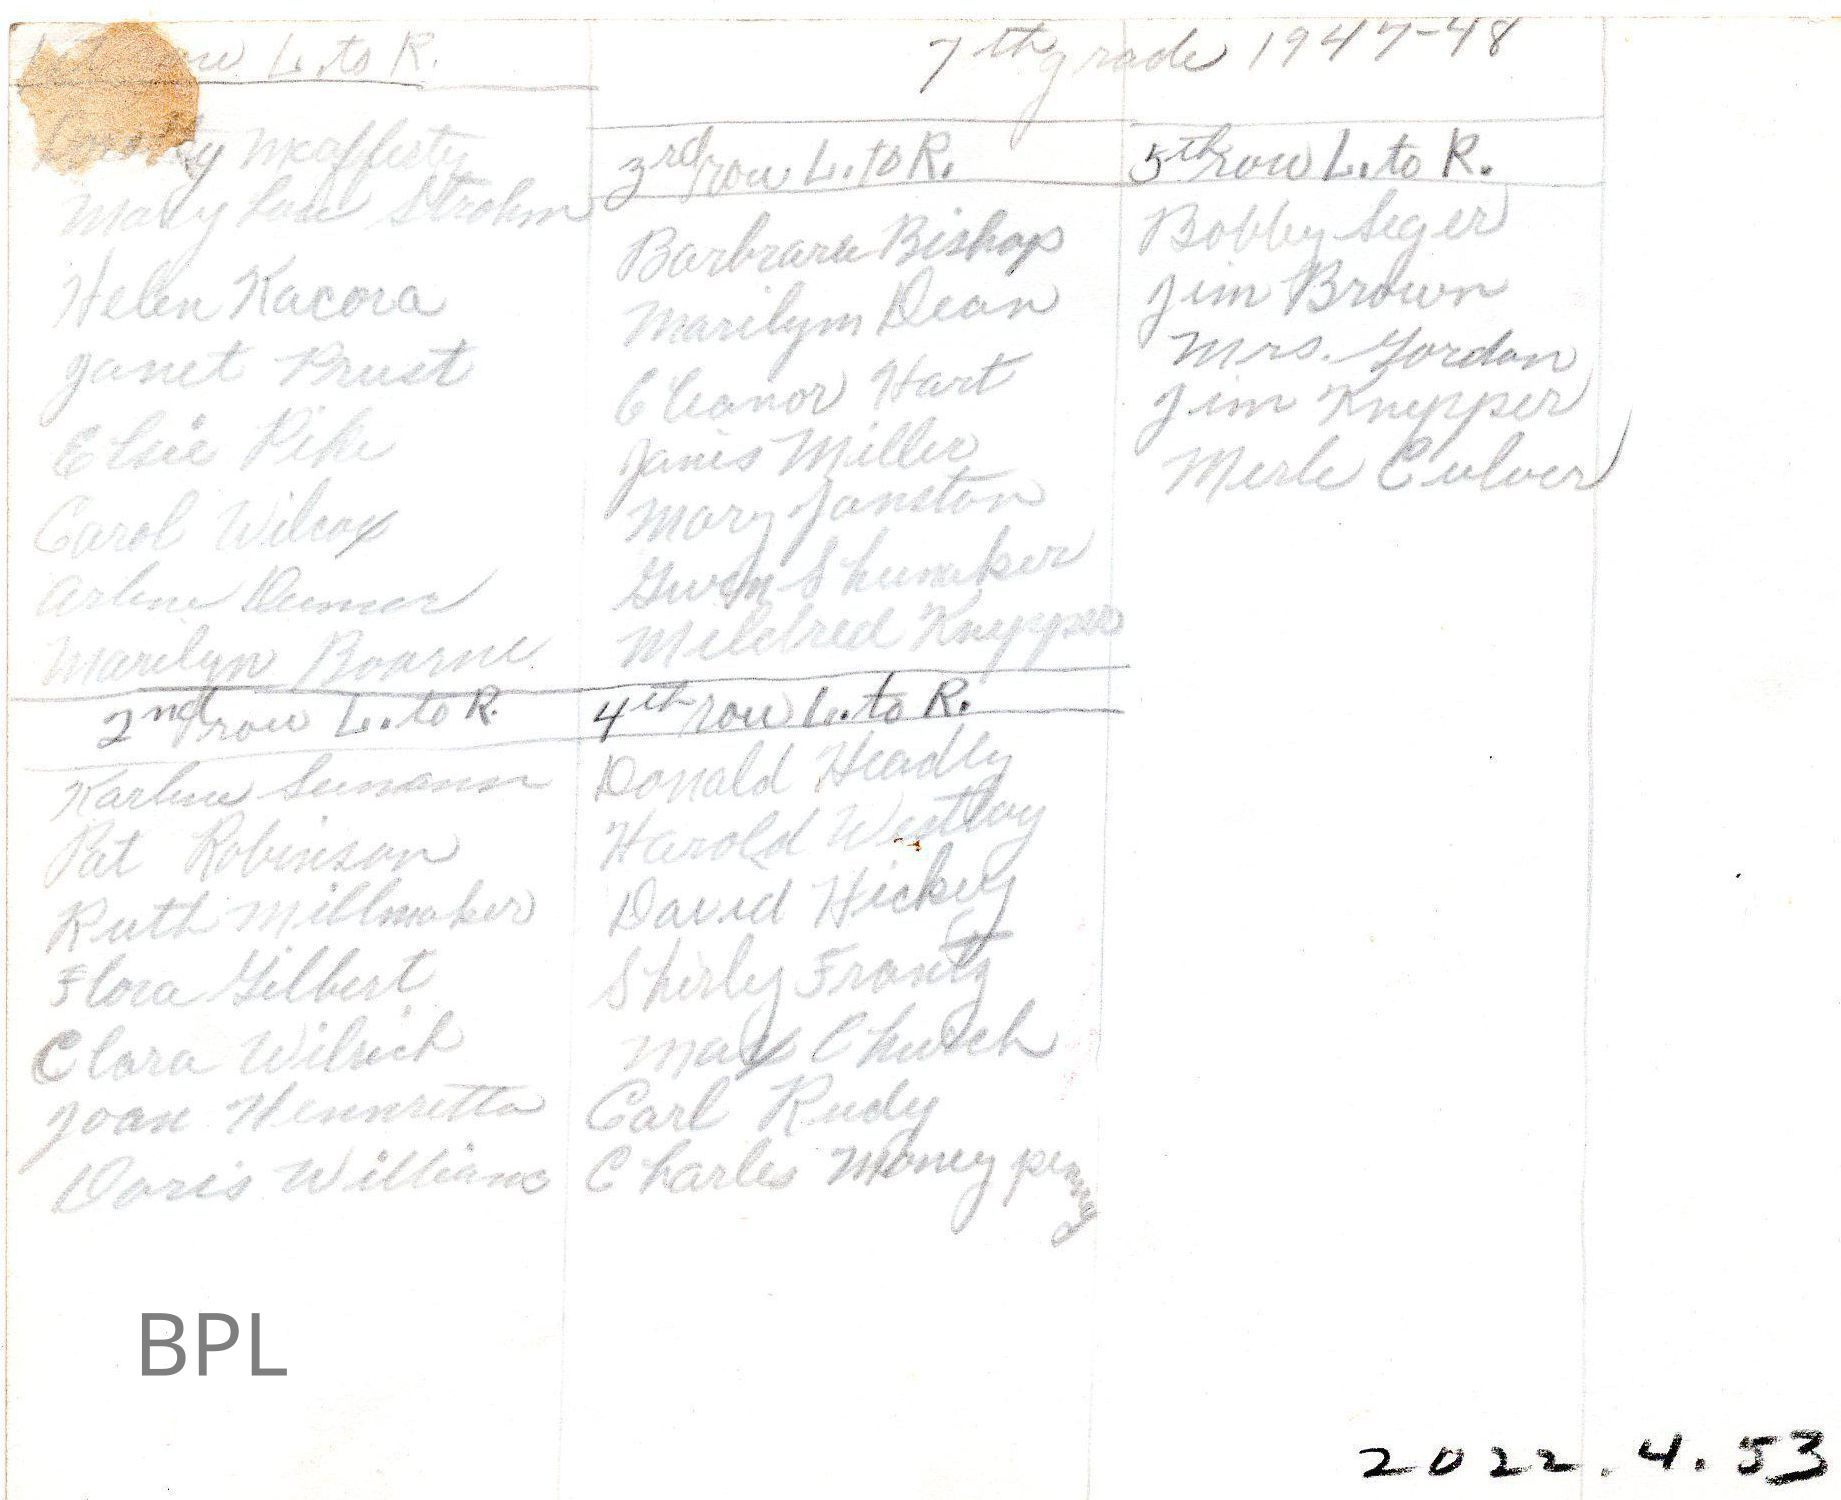 7th grade 1947-48
1st row L. to R.
McAfferty
Mary Lou Strohm
Helen Kacora
Janet Prust
Elsie Pike
Carol Wilcox
Arlene
Marilyn Boarne
2nd row L. to R.
Karlene
Pat Robinson
Ruth Millmaker
Flora Gilbert
Clara Wilrich
Joan Hennretta
Doris Williams
3rd row L. to R.
Barbrara Bishop
Marilym Dean
Eleanor Hart
Janis Miller
Mary Janston
Gwen Shumaker
Mildred Knypper
4th row L. to R.
Donald Headly
Harold Westley
David Hickey
Shirly Frantz
Max Church
Carl Rudy
Charles Moneypenny
5th row L. to R.
Bobby Seger
Jim Brown
Mrs. Gordon
Jim Knypper
Merle Culver
BPL
2022.4.53